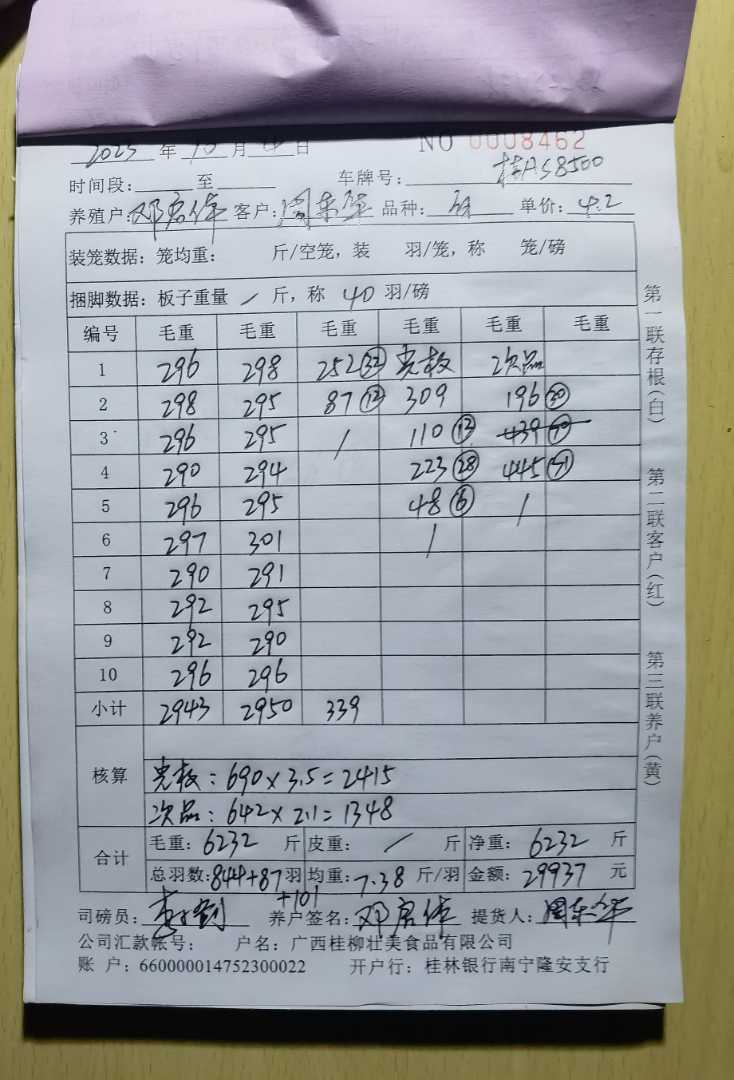 2025年10月 日
NO 0008462
时间段:______至______ 车牌号: 桂AS8500
养殖户:邓启伟 客户:周东华 品种: 单价: 4.2
装笼数据: 笼均重: 斤/空笼, 装 羽/笼, 称 笼/磅
捆脚数据: 板子重量 / 斤, 称 40 羽/磅
编号 毛重 毛重 毛重 毛重 毛重 毛重
1 296 298 252(33) 光板 次品
2 298 295 87(12) 309 196(30)
3 296 295 / 110(13) 439
4 290 294 223(28) 445(71)
5 296 295 48(6) /
6 297 301 /
7 290 291
8 292 295
9 292 290
10 296 296
小计 2943 2950 339
核算
光板: 690×3.5=2415
次品: 642×2.1=1348
合计
毛重: 6232 斤 皮重: / 斤 净重: 6232 斤
总羽数: 844+87 羽 均重: 7.38 斤/羽 金额: 29937 元
+101
司磅员: 养户签名: 邓启伟 提货人: 周东华
公司汇款帐号: 户名: 广西桂柳壮美食品有限公司
账 户: 660000014752300022 开户行: 桂林银行南宁隆安支行
第一联存根(白) 第二联客户(红) 第三联养户(黄)